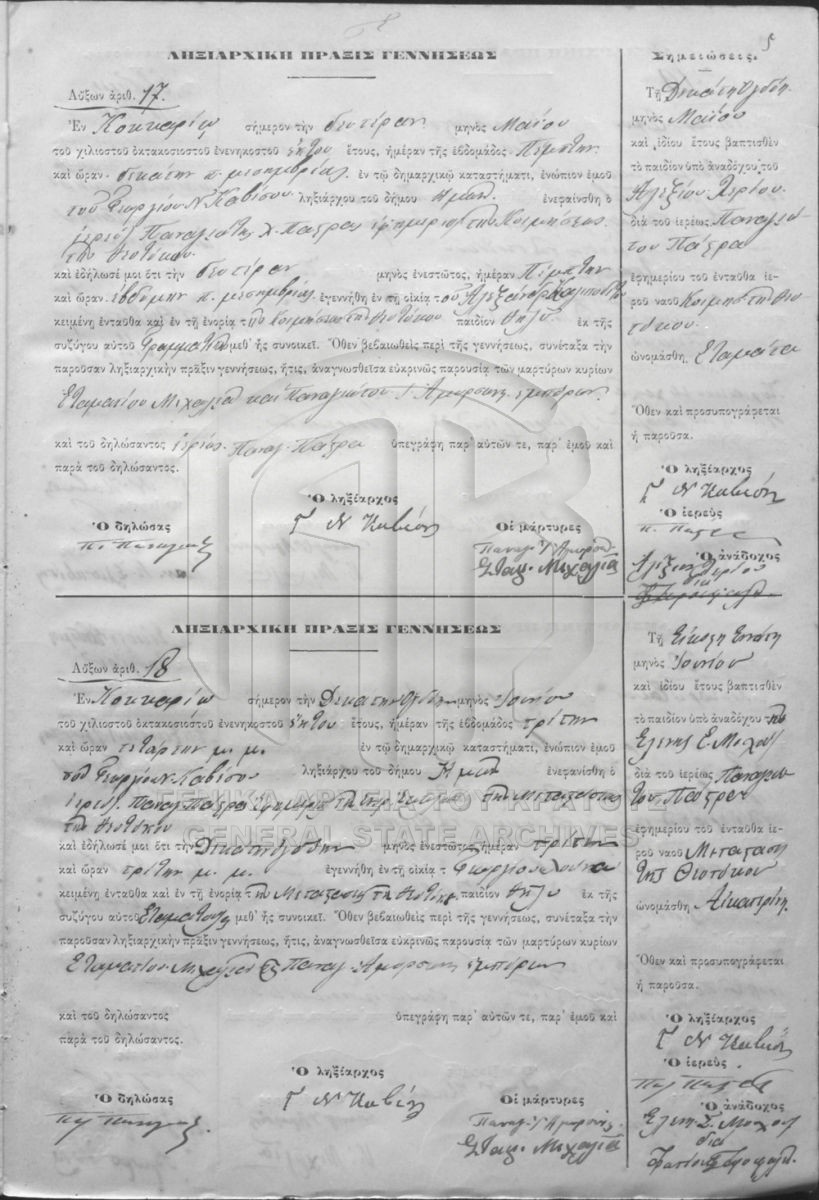 5
ΛΗΞΙΑΡΧΙΚΗ ΠΡΑΞΙΣ ΓΕΝΝΗΣΕΩΣ
Αὔξων ἀριθ. 17.
Ἐν Κοκκαρίῳ σήμερον τὴν δευτέραν μηνὸς Μαΐου
τοῦ χιλιοστοῦ ὀκτακοσιοστοῦ ἐνενηκοστοῦ ἕκτου ἔτους, ἡμέραν τῆς ἑβδομάδος Πέμπτην
καὶ ὥραν δεκάτην π. μεσημβρίας ἐν τῷ δημαρχικῷ καταστήματι, ἐνώπιον ἐμοῦ
τοῦ Γεωργίου Ν. Καβίσου ληξιάρχου τοῦ δήμου ἐνεφανίσθη ὁ
ἱερεὺς Παναγιώτης Χ. Πάτρας ἐφημέριος τῆς Κοιμήσεως
τῆς Θεοτόκου
καὶ ἐδήλωσέ μοι ὅτι τὴν δευτέραν μηνὸς ἐνεστῶτος, ἡμέραν Πέμπτην
καὶ ὥραν ἑβδόμην π. μεσημβρίας ἐγεννήθη ἐν τῇ οἰκίᾳ τοῦ Ἀλεξάνδρου
κειμένῃ ἐνταῦθα καὶ ἐν τῇ ἐνορίᾳ τῆς Κοιμήσεως τῆς Θεοτόκου παιδίον θῆλυ ἐκ τῆς
συζύγου αὐτοῦ Γραμματικῆς μεθ' ἧς συνοικεῖ. Ὅθεν βεβαιωθεὶς περὶ τῆς γεννήσεως, συνέταξα τὴν
παροῦσαν ληξιαρχικὴν πρᾶξιν γεννήσεως, ἥτις, ἀναγνωσθεῖσα εὐκρινῶς παρουσίᾳ τῶν μαρτύρων κυρίων
Σταματίου Μιχαλιᾶ καὶ Παναγιώτου ἐμπόρων
καὶ τοῦ δηλώσαντος ἱερέως Παναγ. Πάτρα ὑπεγράφη παρ' αὐτῶν τε, παρ' ἐμοῦ καὶ
παρὰ τοῦ δηλώσαντος.
Ὁ ληξίαρχος
Γ Ν Καβίσος
Ὁ δηλώσας
Οἱ μάρτυρες
Σταμ. Μιχαλιᾶς
Σημειώσεις.
Τῇ Δεκάτῃ Ὀγδόῃ
μηνὸς Μαΐου
καὶ ἰδίου ἔτους βαπτισθὲν
τὸ παιδίον ὑπὸ ἀναδόχου τοῦ
Ἀλεξίου
διὰ τοῦ ἱερέως Παναγιώ
του Πάτρα
ἐφημερίου τοῦ ἐνταῦθα ἱε-
ροῦ ναοῦ Κοιμήσ. τῆς Θεο
τόκου
ὠνομάσθη Σταμάτα
Ὅθεν καὶ προσυπογράφεται
ἡ παροῦσα.
Ὁ ληξίαρχος
Γ Ν Καβίσος
Ὁ ἱερεὺς
Ὁ ἀνάδοχος
διὰ
ΛΗΞΙΑΡΧΙΚΗ ΠΡΑΞΙΣ ΓΕΝΝΗΣΕΩΣ
Αὔξων ἀριθ. 18
Ἐν Κοκκαρίῳ σήμερον τὴν Δεκάτην Ὀγδόην μηνὸς Ἰουνίου
τοῦ χιλιοστοῦ ὀκτακοσιοστοῦ ἐνενηκοστοῦ ἕκτου ἔτους, ἡμέραν τῆς ἑβδομάδος τρίτην
καὶ ὥραν τετάρτην μ. μ. ἐν τῷ δημαρχικῷ καταστήματι, ἐνώπιον ἐμοῦ
τοῦ Γεωργίου Ν. Καβίσου ληξιάρχου τοῦ δήμου ἐνεφανίσθη ὁ
ἱερεὺς Παναγ. Πάτρας ἐφημέριος τῆς Μεταστάσεως
τῆς Θεοτόκου
ΓΕΝΙΚΑ ΑΡΧΕΙΑ ΤΟΥ ΚΡΑΤΟΥΣ
GENERAL STATE ARCHIVES
καὶ ἐδήλωσέ μοι ὅτι τὴν Δεκάτην Ὀγδόην μηνὸς ἐνεστῶτος, ἡμέραν τρίτην
καὶ ὥραν τρίτην μ. μ. ἐγεννήθη ἐν τῇ οἰκίᾳ τ Γεωργίου
κειμένῃ ἐνταῦθα καὶ ἐν τῇ ἐνορίᾳ τῆς Μεταστάσεως τῆς Θεοτόκου παιδίον θῆλυ ἐκ τῆς
συζύγου αὐτοῦ Σταματούλας μεθ' ἧς συνοικεῖ. Ὅθεν βεβαιωθεὶς περὶ τῆς γεννήσεως, συνέταξα τὴν
παροῦσαν ληξιαρχικὴν πρᾶξιν γεννήσεως, ἥτις, ἀναγνωσθεῖσα εὐκρινῶς παρουσίᾳ τῶν μαρτύρων κυρίων
Σταματίου Μιχαλιᾶ καὶ Παναγ. ἐμπόρων
καὶ τοῦ δηλώσαντος ὑπεγράφη παρ' αὐτῶν τε, παρ' ἐμοῦ καὶ
παρὰ τοῦ δηλώσαντος.
Ὁ ληξίαρχος
Γ Ν Καβίσος
Ὁ δηλώσας
Οἱ μάρτυρες
Σταμ. Μιχαλιᾶς
Τῇ Εἰκοστῇ Ἐννάτῃ
μηνὸς Ἰουνίου
καὶ ἰδίου ἔτους βαπτισθὲν
τὸ παιδίον ὑπὸ ἀναδόχου τῆς
Ἑλένης
διὰ τοῦ ἱερέως Παναγιώ
του Πάτρα
ἐφημερίου τοῦ ἐνταῦθα ἱε-
ροῦ ναοῦ Μεταστάσ.
τῆς Θεοτόκου
ὠνομάσθη Αἰκατερίνη
Ὅθεν καὶ προσυπογράφεται
ἡ παροῦσα.
Ὁ ληξίαρχος
Γ Ν Καβίσος
Ὁ ἱερεὺς
Ὁ ἀνάδοχος
διὰ